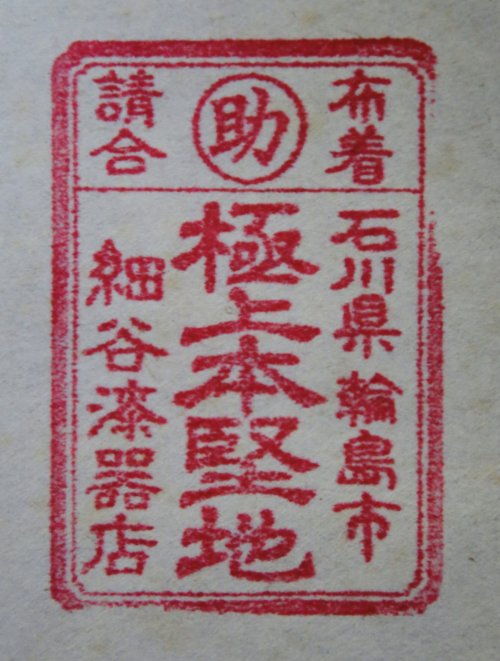 布着
助
請合
石川県輪島市
極上本堅地
細谷漆器店